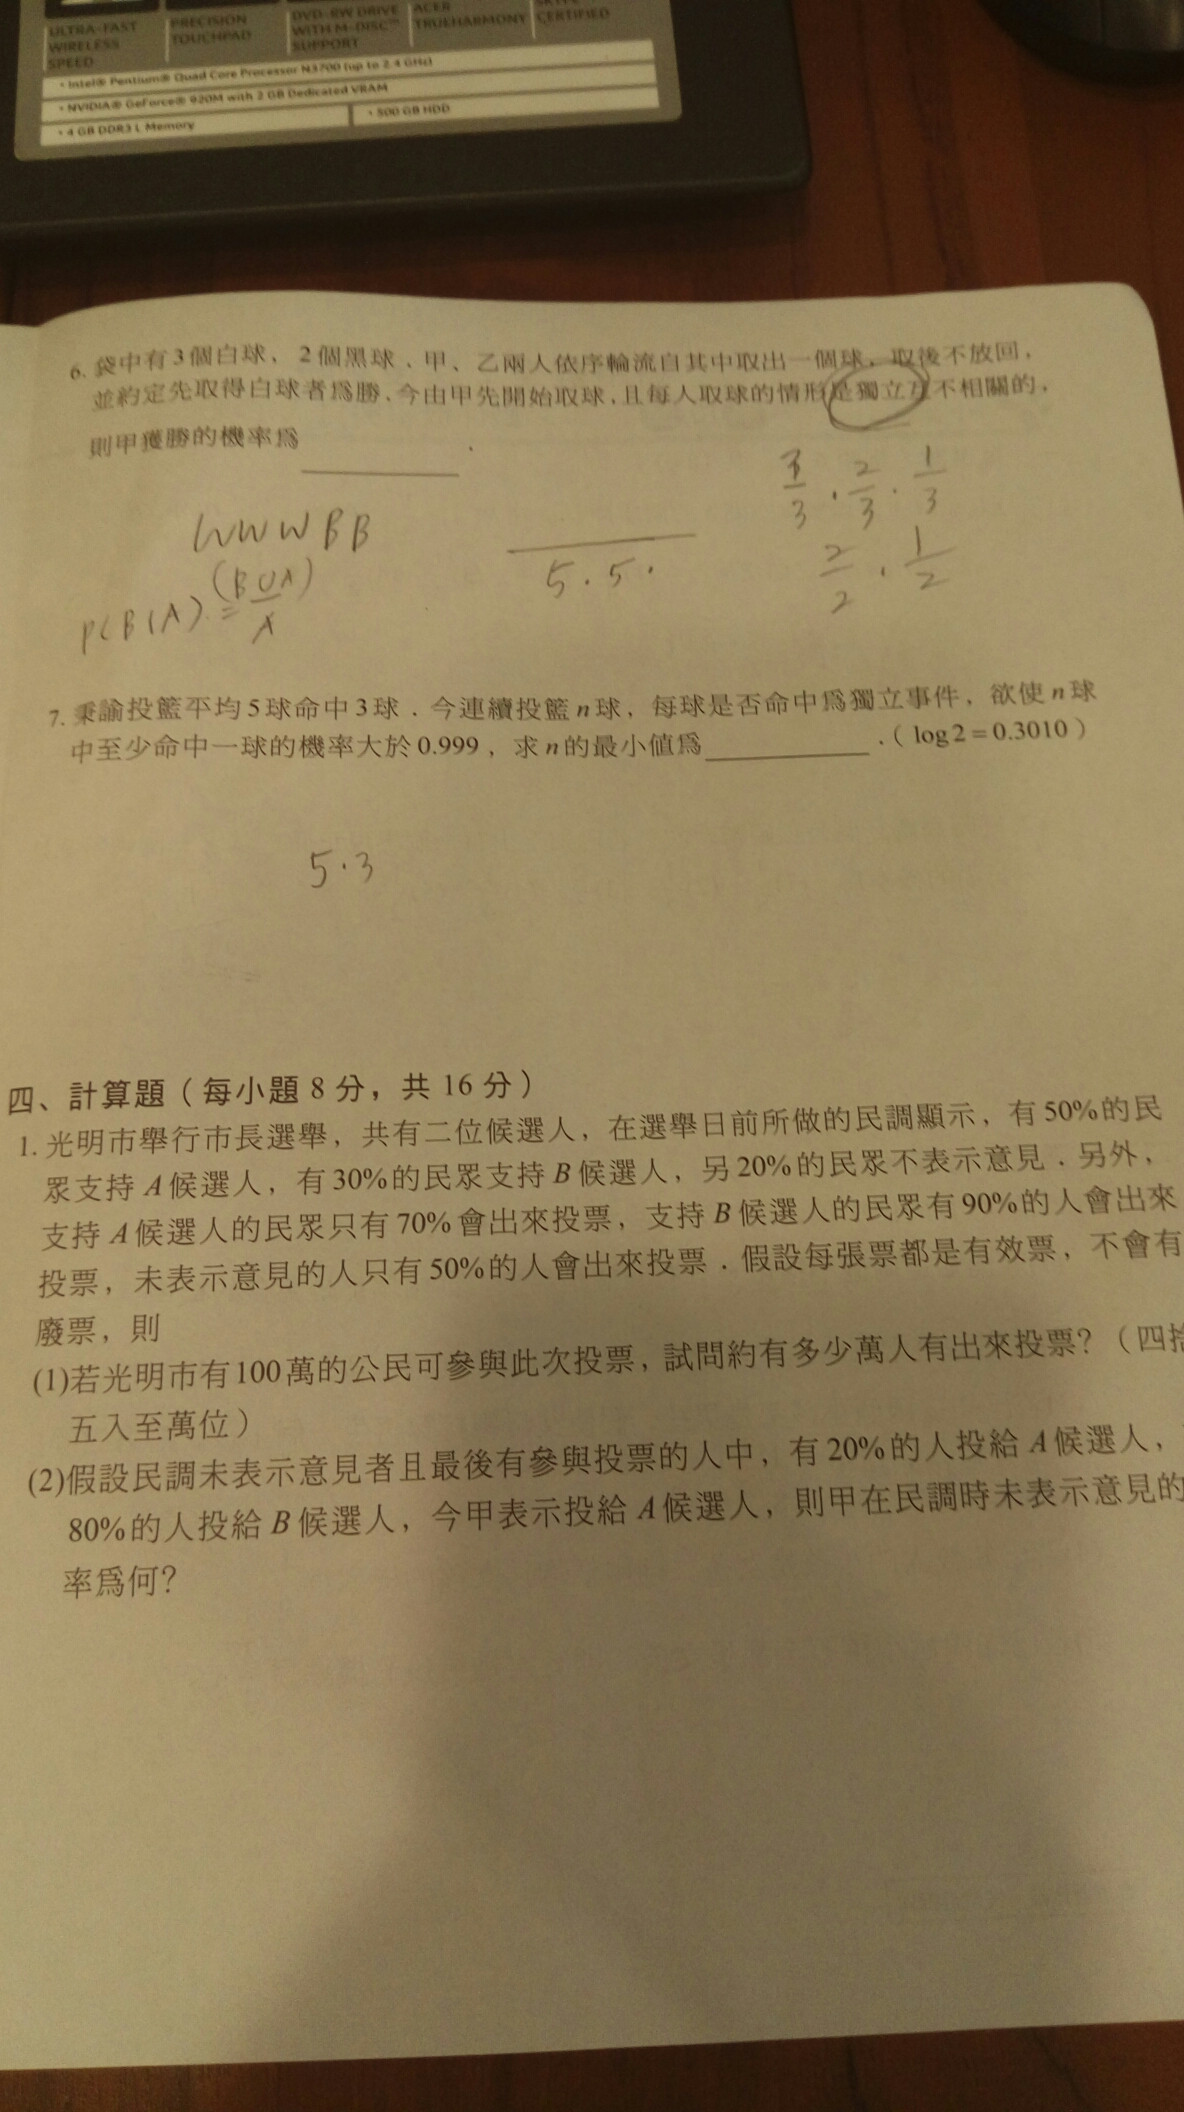 ULTRA-FAST
WIRELESS
SPEED
PRECISION
TOUCHPAD
DVD-RW DRIVE
WITH M-DISC™
SUPPORT
ACER
TRUEHARMONY
SKYPE
CERTIFIED
• Intel® Pentium® Quad Core Processor N3700 (up to 2.4 GHz)
• NVIDIA® GeForce® 920M with 2 GB Dedicated VRAM
• 4 GB DDR3 L Memory
• 500 GB HDD
6. 袋中有3個白球、2個黑球．甲、乙兩人依序輪流自其中取出一個球，取後不放回，
並約定先取得白球者為勝．今由甲先開始取球，且每人取球的情形是獨立互不相關的，
則甲獲勝的機率為 ．
3/3 · 2/3 · 1/3
WWWBB
5 . 5 .
2/2 · 1/2
P(B|A) = (B∪A)/A
7. 秉諭投籃平均5球命中3球．今連續投籃n球，每球是否命中為獨立事件，欲使n球
中至少命中一球的機率大於0.999，求n的最小值為 ．（log2=0.3010）
5·3
四、計算題（每小題8分，共16分）
1. 光明市舉行市長選舉，共有二位候選人，在選舉日前所做的民調顯示，有50%的民
眾支持A候選人，有30%的民眾支持B候選人，另20%的民眾不表示意見．另外，
支持A候選人的民眾只有70%會出來投票，支持B候選人的民眾有90%的人會出來
投票，未表示意見的人只有50%的人會出來投票．假設每張票都是有效票，不會有
廢票，則
(1)若光明市有100萬的公民可參與此次投票，試問約有多少萬人有出來投票？（四捨
五入至萬位）
(2)假設民調未表示意見者且最後有參與投票的人中，有20%的人投給A候選人，
80%的人投給B候選人，今甲表示投給A候選人，則甲在民調時未表示意見的
率為何？